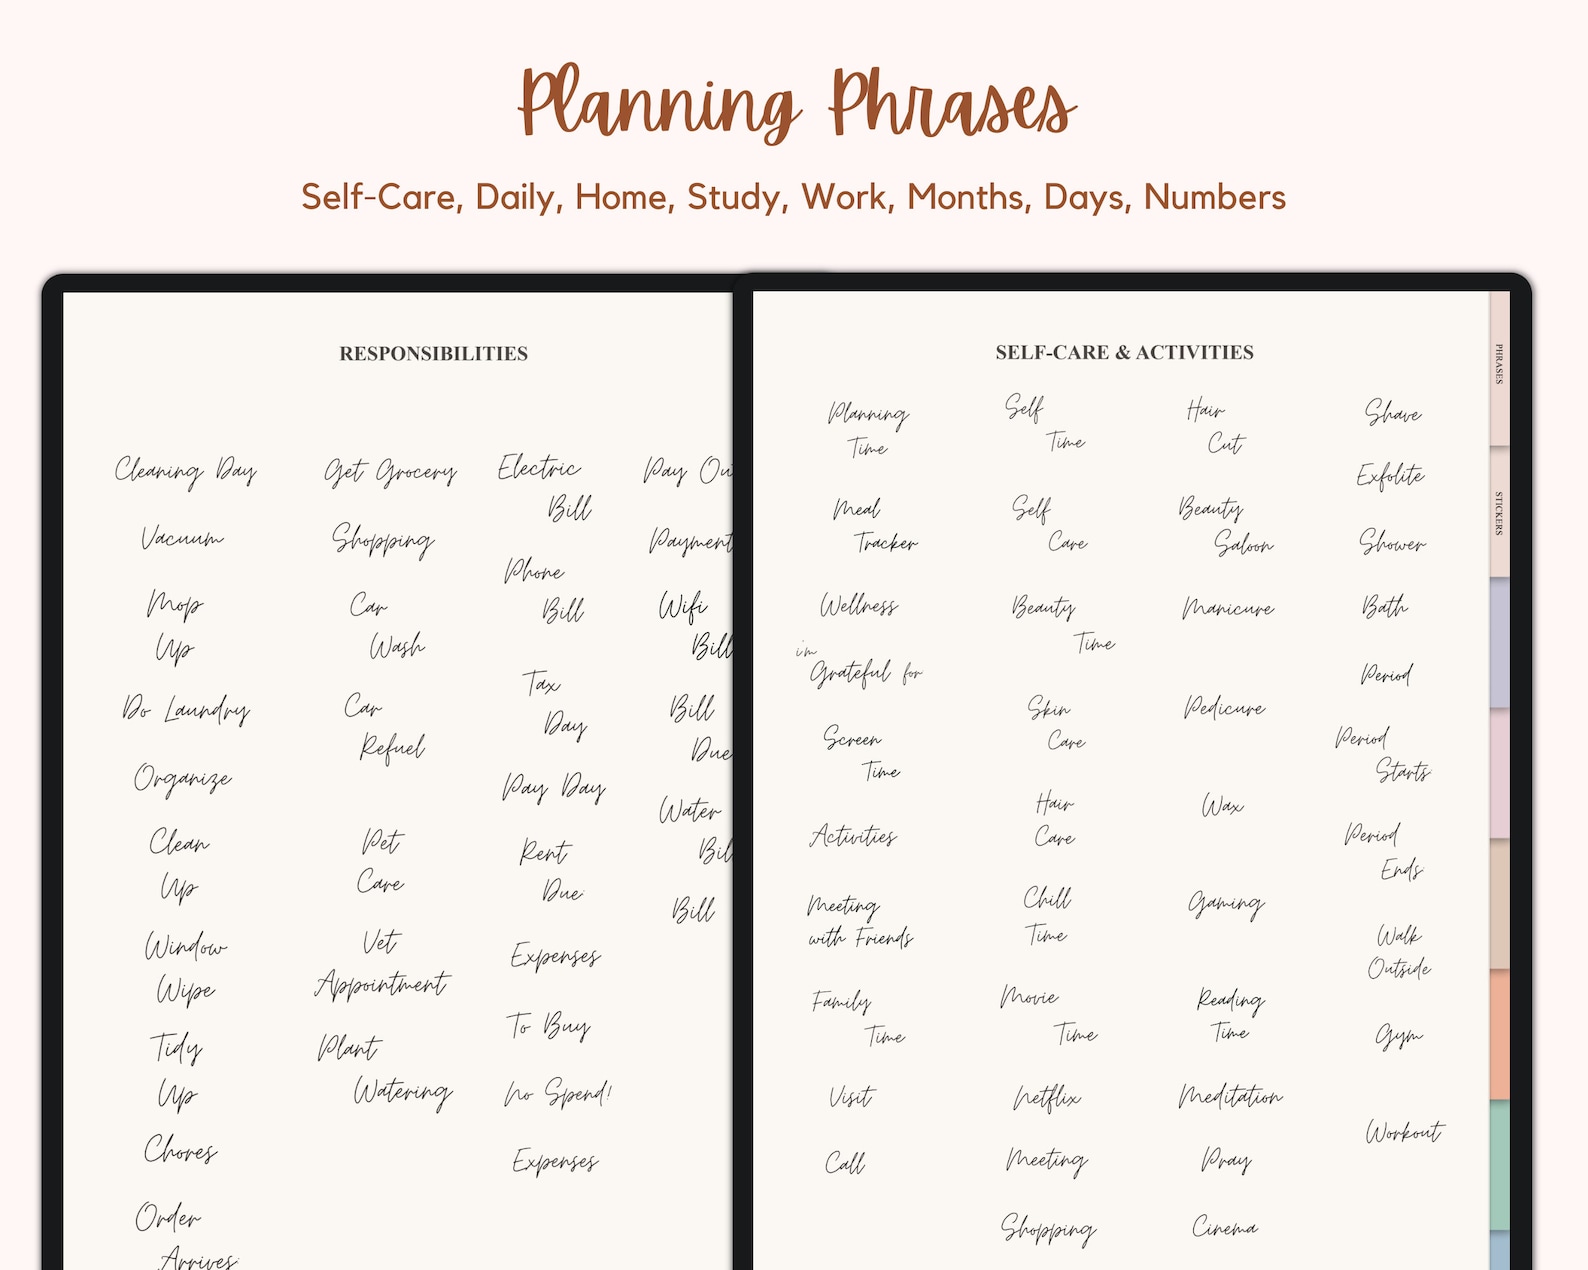 Planning Phrases
Self-Care, Daily, Home, Study, Work, Months, Days, Numbers
RESPONSIBILITIES
Cleaning Day
Vacuum
Mop
Up
Do Laundry
Organize
Clean
Up
Window
Wipe
Tidy
Up
Chores
Order
Arrives:
Get Grocery
Shopping
Car
Wash
Car
Refuel
Pet
Care
Vet
Appointment
Plant
Watering
Electric
Bill
Phone
Bill
Tax
Day
Pay Day
Rent
Due:
Expenses
To Buy
No Spend!
Expenses
Pay Ou
Payment
Wifi
Bill
Bill
Due
Water
Bil
Bill
SELF-CARE & ACTIVITIES
Planning
Time
Meal
Tracker
Wellness
i'm
Grateful for
Screen
Time
Activities
Meeting
with Friends
Family
Time
Visit
Call
Self
Time
Self
Care
Beauty
Time
Skin
Care
Hair
Care
Chill
Time
Movie
Time
Netflix
Meeting
Shopping
Hair
Cut
Beauty
Saloon
Manicure
Pedicure
Wax
Gaming
Reading
Time
Meditation
Pray
Cinema
Shave
Exfolite
Shower
Bath
Period
Period
Starts
Period
Ends
Walk
Outside
Gym
Workout
PHRASES
STICKERS